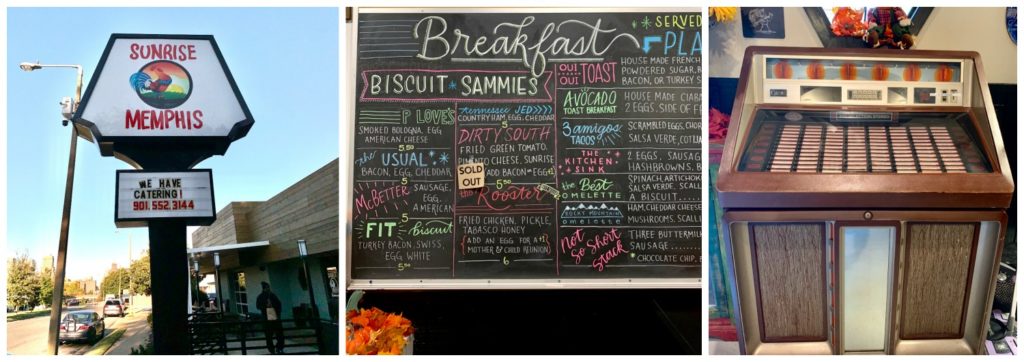 SUNRISE
MEMPHIS
WE HAVE
CATERING!
901.552.3144
Breakfast
BISCUIT * SAMMIES
P LOVE'S
SMOKED BOLOGNA, EGG
AMERICAN CHEESE
5.50
the USUAL
BACON, EGG, CHEDDAR
5
McBETTER
SAUSAGE,
EGG,
AMERICAN
5
FIT Biscuit
TURKEY BACON, SWISS,
EGG WHITE
5.50
Tennessee JED
COUNTRY HAM, EGG, CHEDDAR
5
DIRTY SOUTH
FRIED GREEN TOMATO,
PIMENTO CHEESE, SUNRISE
ADD BACON OR EGG +1
5.50
SOLD
OUT
the Rooster
FRIED CHICKEN, PICKLE,
TABASCO HONEY
ADD AN EGG FOR A +1
MOTHER & CHILD REUNION
6
SERVED
PLA
OUI OUI TOAST
HOUSE MADE FRENCH
POWDERED SUGAR,
BACON, OR TURKEY S
AVOCADO
TOAST BREAKFAST
HOUSE MADE CIABA
2 EGGS, SIDE OF F
3 amigos
TACOS
SCRAMBLED EGGS, CHOR
SALSA VERDE, COTIJA
THE KITCHEN
SINK
2 EGGS, SAUSAG
HASHBROWNS, B
the Best
OMELETTE
SPINACH, ARTICHOK
SALSA VERDE, SCALL
A BISCUIT
ROCKY MOUNTAIN
omelette
HAM, CHEDDAR CHEESE
MUSHROOMS, SCALLI
Not So Short
Stack
THREE BUTTERMIL
SAUSAGE
* CHOCOLATE CHIP, B